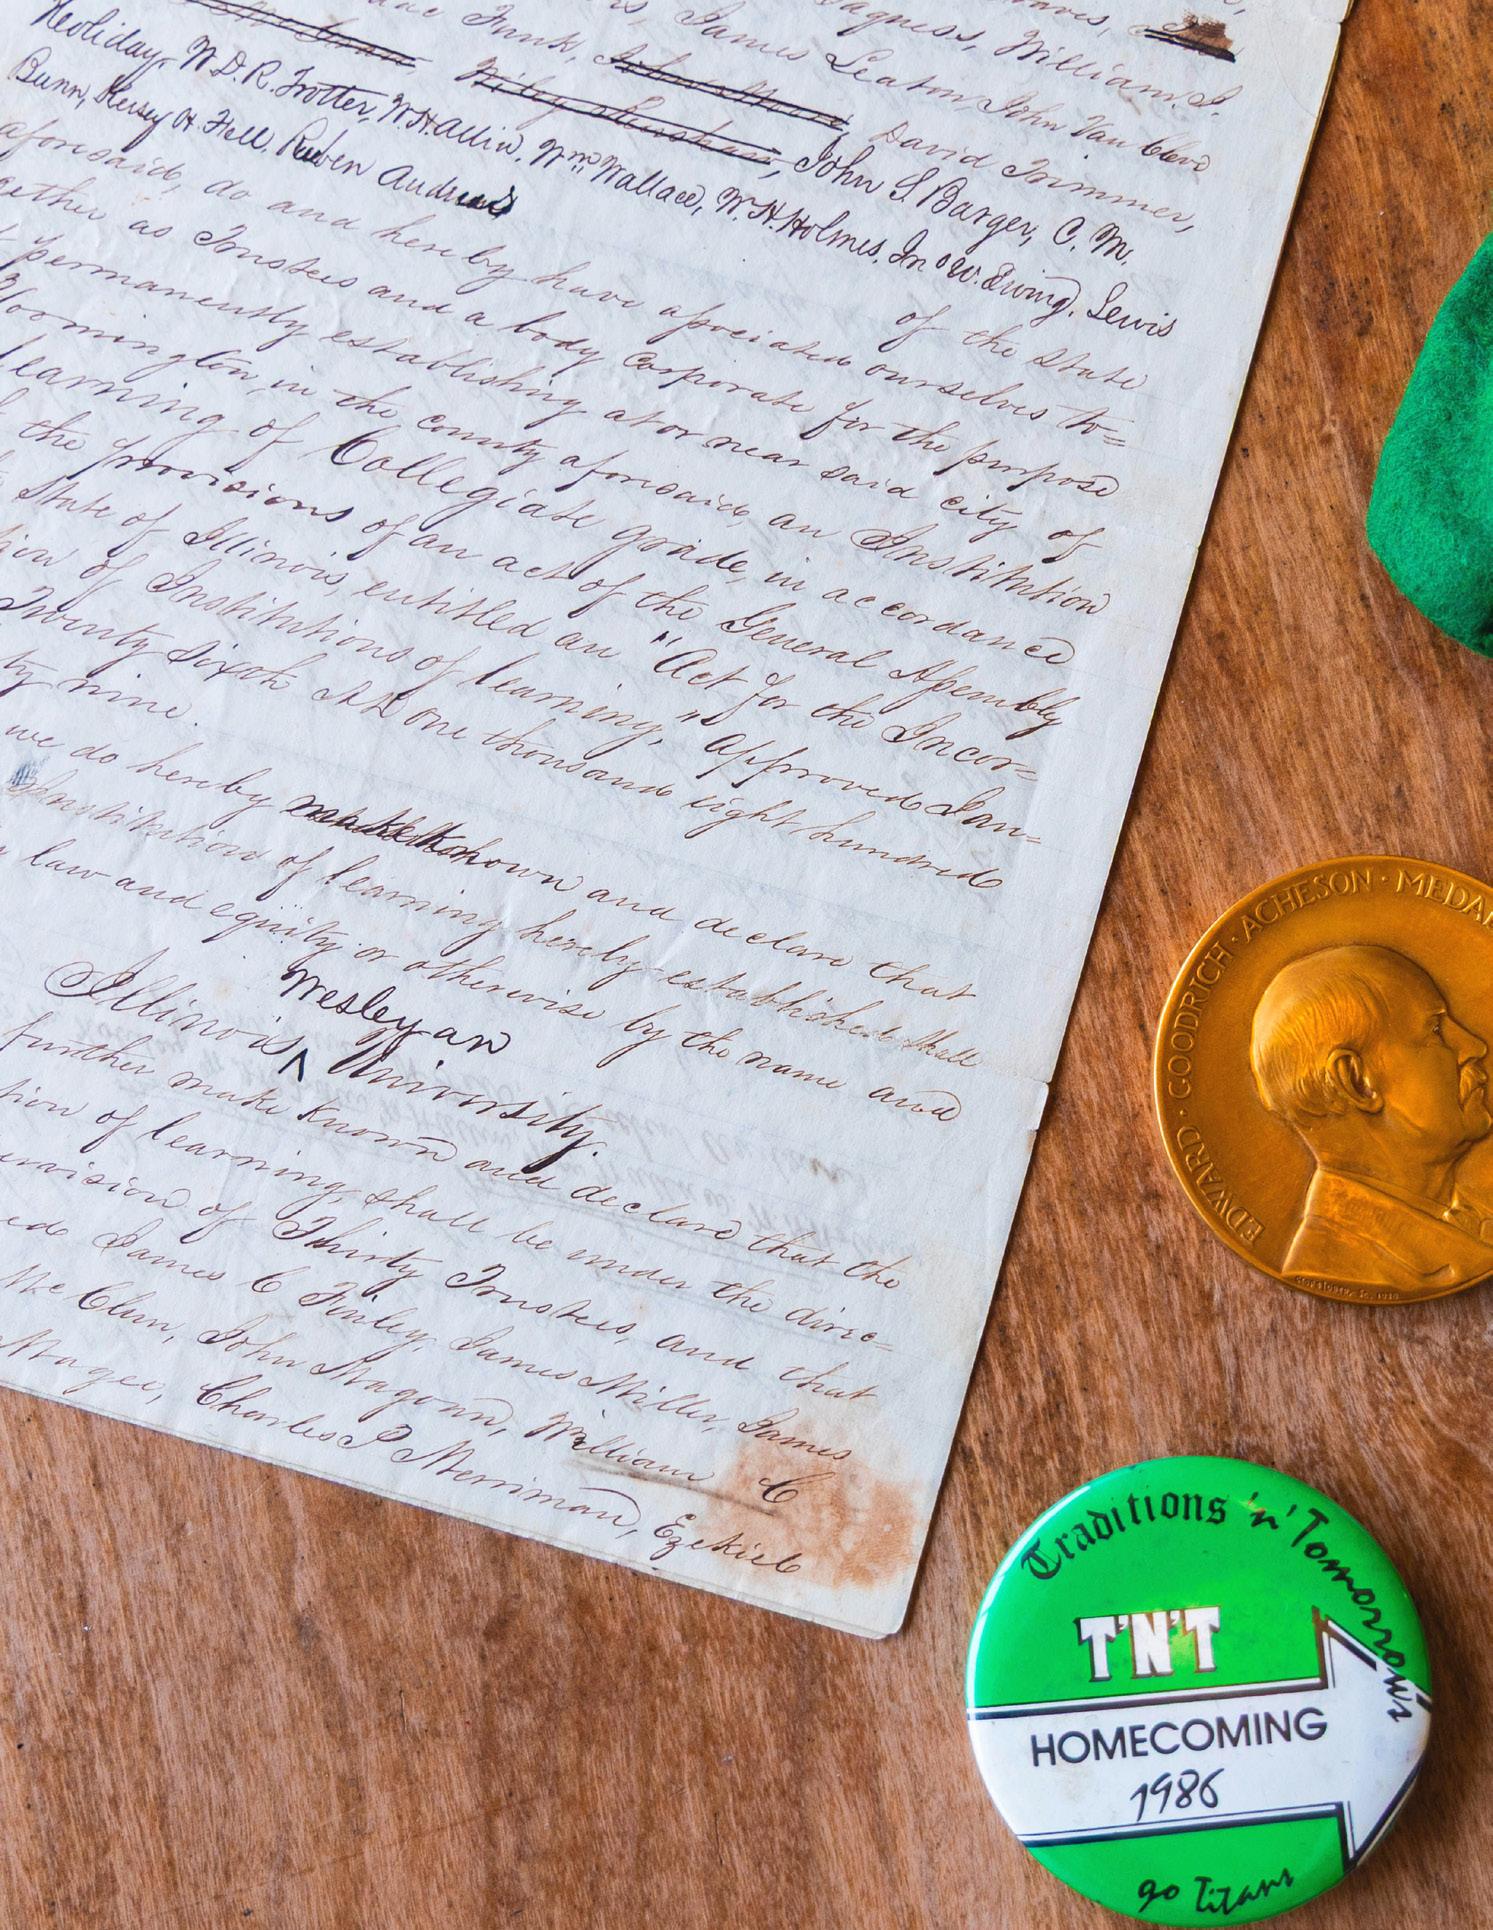 James Leaton, John Van Cleve
Funk, David Trimmer,
John S. Barger, C. M.
Holiday, W. D. R. Trotter, W. H. Allin, Wm Wallace, W. H. Holmes, Jno W. Ewing, Lewis
Bunn, Kersey H. Fell, Reuben Andrews of the State
aforesaid, do and hereby have associated ourselves to=
gether as Trustees and a body Corporate for the purpose
permanently establishing at or near said city of
Bloomington, in the county aforesaid, an Institution
learning of Collegiate grade, in accordance
the provisions of an act of the General Assembly
State of Illinois, entitled an "Act for the Incor=
of Institutions of learning," approved Jan=
Twenty sixth one thousand eight hundred
ty nine.
we do hereby make known and declare that
Institution of learning hereby established shall
law and equity or otherwise by the name and
Illinois Wesleyan University.
further make known and declare that the
tion of learning, shall be under the direc=
of Thirty Trustees, and that
James C Finley, James Miller, James
John Magoun, William C
Magee, Charles P Merriman, Ezekiel
EDWARD · GOODRICH · ACHESON · MEDAL
Traditions 'n' Tomorrows
T'N'T
HOMECOMING
1986
go Titans